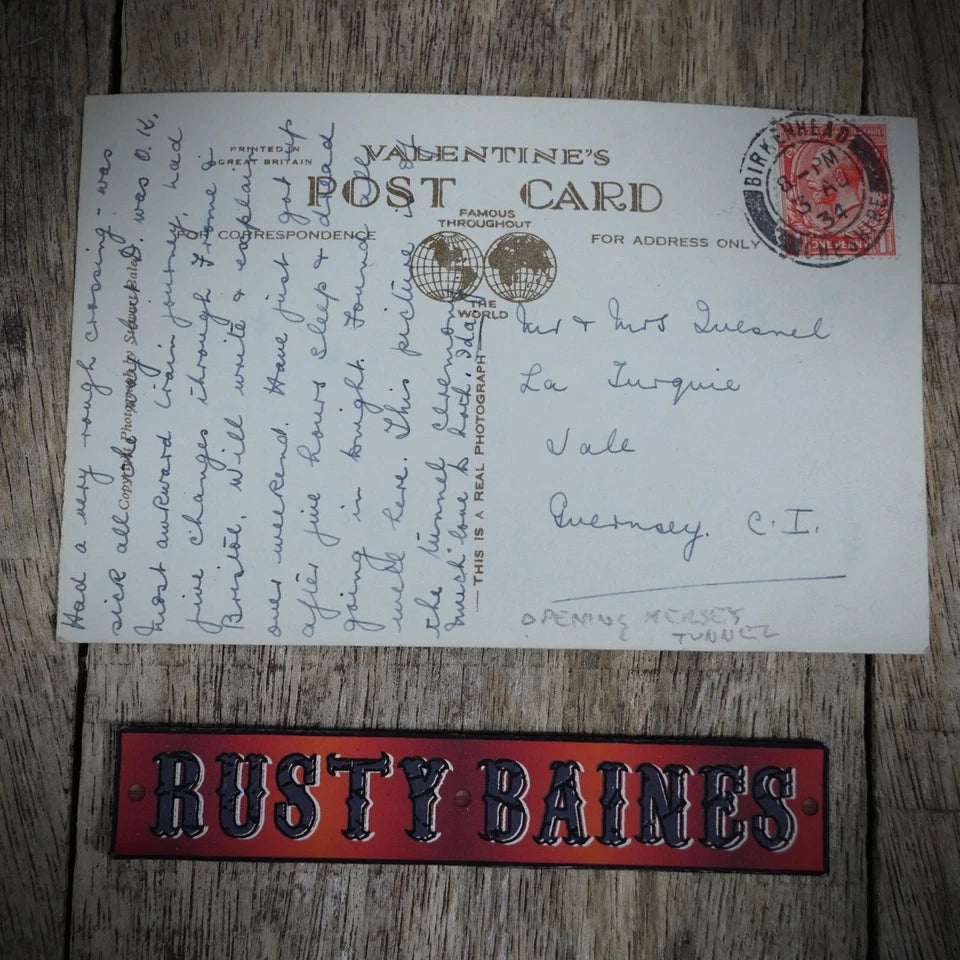 PRINTED IN
GREAT BRITAIN
VALENTINE'S
POST CARD
FAMOUS
THROUGHOUT
THE
WORLD
FOR CORRESPONDENCE
FOR ADDRESS ONLY
THIS IS A REAL PHOTOGRAPH
Copyright Photograph by Stewart Bale
BIRKENHEAD
8 - PM
3 AU
34
ONE PENNY
Had a very rough crossing - was
sick all the way. D. was O.K.
Most awkward train journey, had
five changes through Frome &
Bristol. Will write & explain
over weekend. Have just got up
after five hours sleep & dread
going in tonight. Found all
well here. This picture is of
the tunnel ceremony
much love to both, Ida
Mr & Mrs Quesnel
La Turquie
Vale
Guernsey. C.I.
OPENING MERSEY
TUNNEL
RUSTY BAINES